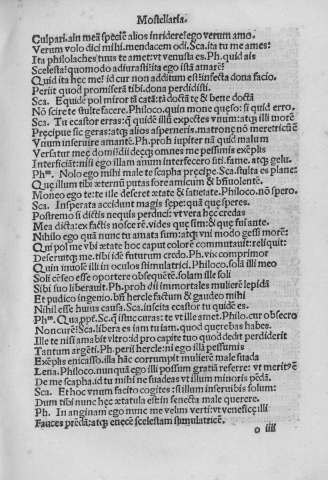 Mostellaria.
Culpari. aın meā speciē alios irridere! ego verum amo.
Verum volo dici mihi. mendacem odi. Sca. ita tu me ames:
Ita philolaches tuus te amet: vt venusta es. Ph. quid ais
Scelesta! quomodo adiurasti! ita ego istā amarē!
Quid ita hec me! id cur non additum est! infecta dona facio.
Periit quod promiserā tibi. dona perdidisti.
Sca. Equidē pol miror tā catā: tā doctā te & bene doctā
Nō scire te stulte facere. Philoco. quin mone queso: si quid erro.
Sca. Tu ecastor erras: q̄ quidē illū expectes vnum: atq; illi morē
Precipue sic geras: atq; alios asperneris. matronę nō meretricū ē
Vnum inseruire amantē. Ph. proh iupiter nā quid malum
Versatur meę domi! dii deęq; omnes me pessimis exēplis
Interficiāt: nisi ego illam anum interfecero siti. fame. atq; gelu.
Phᵐ. Nolo ego mihi male te scapha precipe. Sca. stulta es plane:
Que illum tibi eternū putas fore amicum & beniuolentē.
Moneo ego te: te ille deseret etate & satietate. Philoco. nō spero.
Sca. Insperata accidunt magis sepe: quā que speres.
Postremo si dictis nequis perduci: vt vera hęc credas
Mea dicta: ex factis nosce rē. vides que sim: & que fui ante.
Nihilo ego quā nunc tu amata sum: atq; vni modo gessi morē:
Qui pol me vbi etate hoc caput colorē commutauit: reliquit:
Deseruitq; me. tibi idē futurum credo. Ph. vix comprimor
Quin inuolē illi in oculos stimulatrici. Philoco. solā illi meo
Soli cēseo esse oportere obsequētē. solam ille soli
Sibi suo liberauit. Ph. proh dii immortales mulierē lepidā
Et pudico ingenio. bn̄ hercle factum & gaudeo mihi
Nihil esse huius causa. Sca. inscita ecastor tu quidē es.
Phᵐ. Qua ppt̄. Sca. q̄ istuc curas: te vt ille amet. Philo. cur obsecro
Non curē! Sca. libera es iam tu iam. quod querebas habes.
Ille te nisi amabit vltro: id pro capite tuo quod dedit perdiderit
Tantum argēti. Ph. perii hercle: ni ego illā pessumis
Exēplis enicasso. illa hāc corrumpit mulierē male suada
Lena. Philoco. nunquā ego illi possum gratiā referre: vt meritꝰ ē
De me scapha. id tu mihi ne suadeas vt illum minoris pēdā.
Sca. Et hoc vnum facito cogites: si illum inseruibis solum:
Dum tibi nunc hęc ætatula est: in senecta male querere.
Ph. In anginam ego nunc me velim verti: vt veneficę illi
Fauces prēdā: atq; enecē scelestam stimulatricē.
o iiii